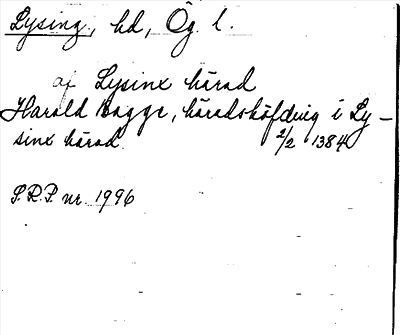 Lysing, hd, Ög. l.
af Lysinx härad
Harald bagge, häradshöfding i Ly-
sinx härad. 2/2 1384
S.R.P. nr. 1996